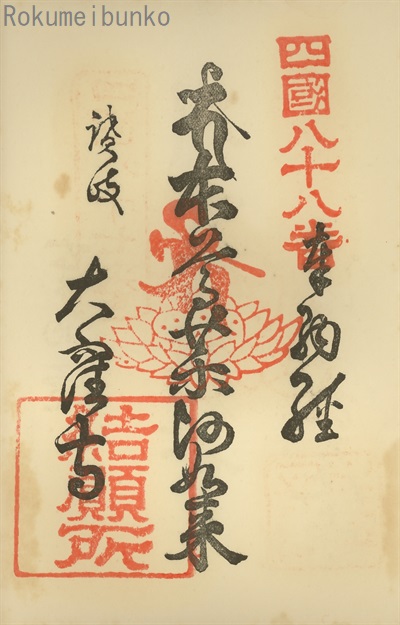 Rokumeibunko
四國八十八番
奉納経
本尊薬師如来
讃岐
大窪寺
結願所